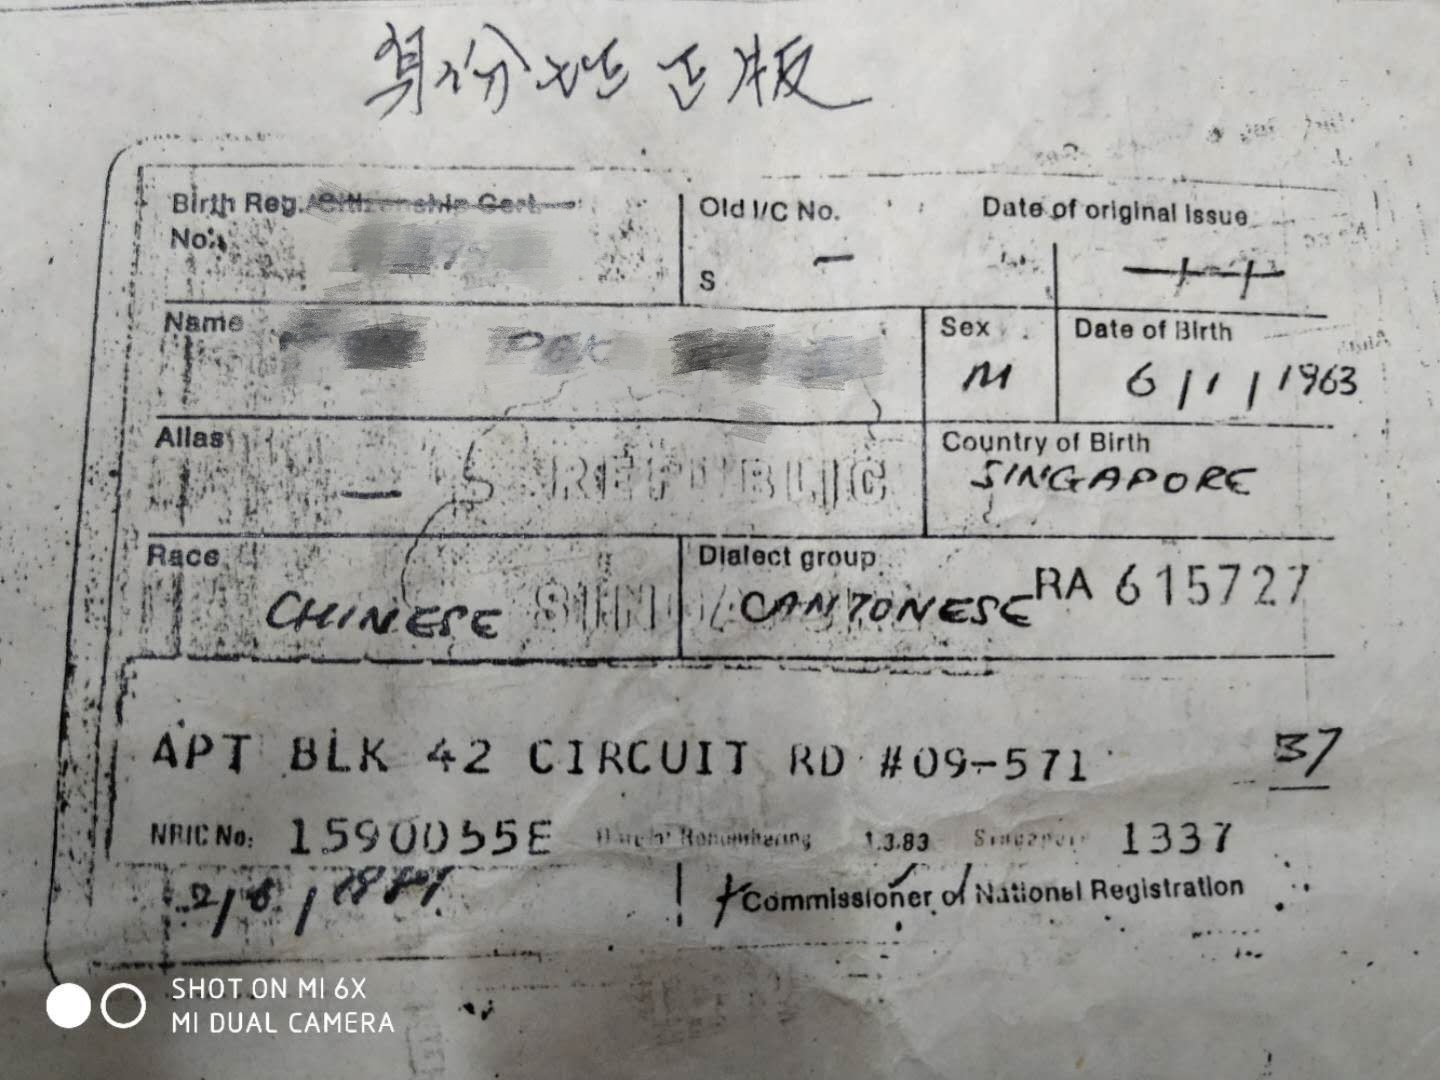 身份证正版
Birth Reg./Citizenship Cert.
No.
Old I/C No.
Date of original issue
S -
Name
Sex
Date of Birth
M
6/1/1963
Alias
-
REPUBLIC
Country of Birth
SINGAPORE
Race
Dialect group
CHINESE
CANTONESE
RA 615727
APT BLK 42 CIRCUIT RD #09-571
37
NRIC No: 1590055E
1.3.83
1337
Commissioner of National Registration
SHOT ON MI 6X
MI DUAL CAMERA